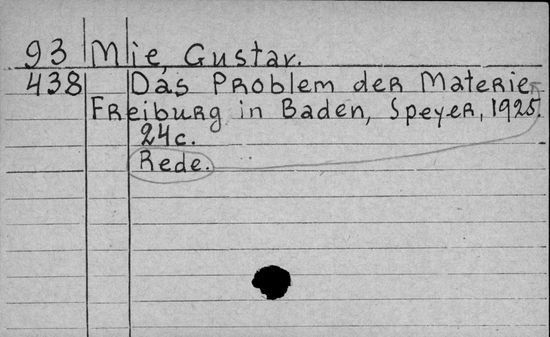 93 Mie, Gustav.
438 Das Problem der Materie
Freiburg in Baden, Speyer, 1925.
24c.
Rede.